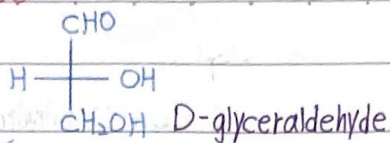 CHO
H OH
CH₂OH D-glyceraldehyde